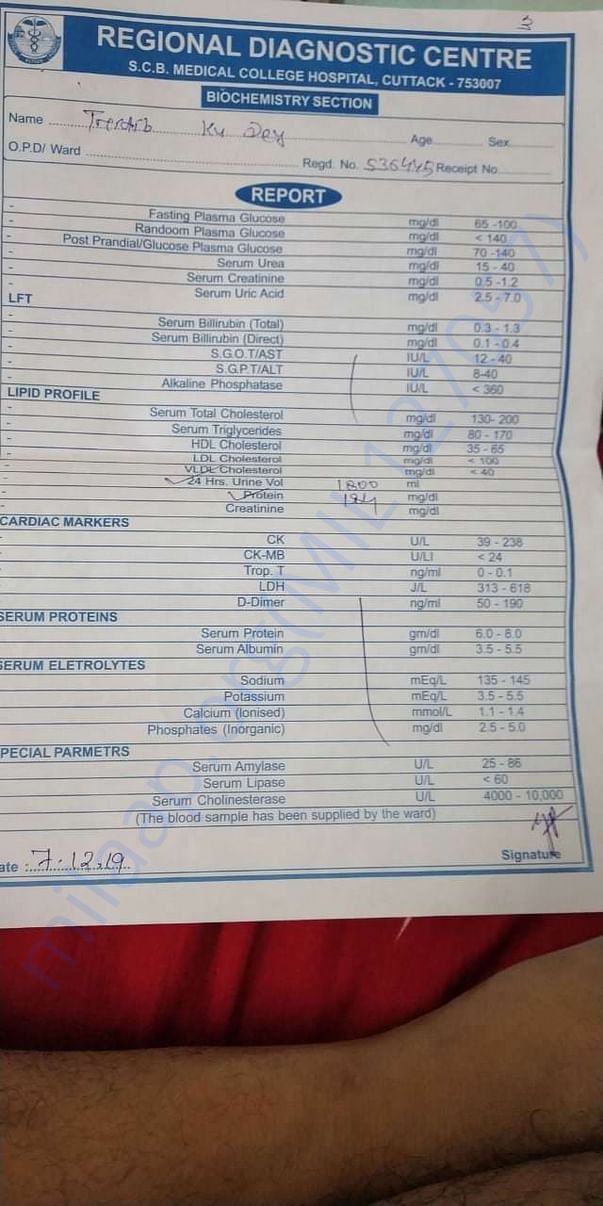 3
REGIONAL DIAGNOSTIC CENTRE
S.C.B. MEDICAL COLLEGE HOSPITAL, CUTTACK - 753007
BIOCHEMISTRY SECTION
Name ........ Ku Dey Age ........ Sex ........
O.P.D/ Ward ........ Regd. No. 536445 Receipt No ........
REPORT
- Fasting Plasma Glucose mg/dl 65 -100
- Randoom Plasma Glucose mg/dl < 140
- Post Prandial/Glucose Plasma Glucose mg/dl 70 -140
- Serum Urea mg/dl 15 - 40
- Serum Creatinine mg/dl 0.5 -1.2
- Serum Uric Acid mg/dl 2.5 - 7.0
LFT
- Serum Billirubin (Total) mg/dl 0.3 - 1.3
- Serum Billirubin (Direct) mg/dl 0.1 - 0.4
- S.G.O.T/AST IU/L 12 - 40
- S.G.P.T/ALT IU/L 8-40
- Alkaline Phosphatase IU/L < 360
LIPID PROFILE
- Serum Total Cholesterol mg/dl 130- 200
- Serum Triglycerides mg/dl 80 - 170
- HDL Cholesterol mg/dl 35 - 65
- LDL Cholesterol mg/dl < 100
- VLDL Cholesterol mg/dl < 40
- 24 Hrs. Urine Vol 1800 ml
- Protein 184 mg/dl
- Creatinine mg/dl
CARDIAC MARKERS
CK U/L 39 - 238
CK-MB U/LI < 24
Trop. T ng/ml 0 - 0.1
LDH J/L 313 - 618
D-Dimer ng/ml 50 - 190
SERUM PROTEINS
Serum Protein gm/dl 6.0 - 8.0
Serum Albumin gm/dl 3.5 - 5.5
SERUM ELETROLYTES
Sodium mEq/L 135 - 145
Potassium mEq/L 3.5 - 5.5
Calcium (Ionised) mmol/L 1.1 - 1.4
Phosphates (Inorganic) mg/dl 2.5 - 5.0
PECIAL PARMETRS
Serum Amylase U/L 25 - 86
Serum Lipase U/L < 60
Serum Cholinesterase U/L 4000 - 10,000
(The blood sample has been supplied by the ward)
ate : 7.12.19 Signature
milaap.org(MIL127057)